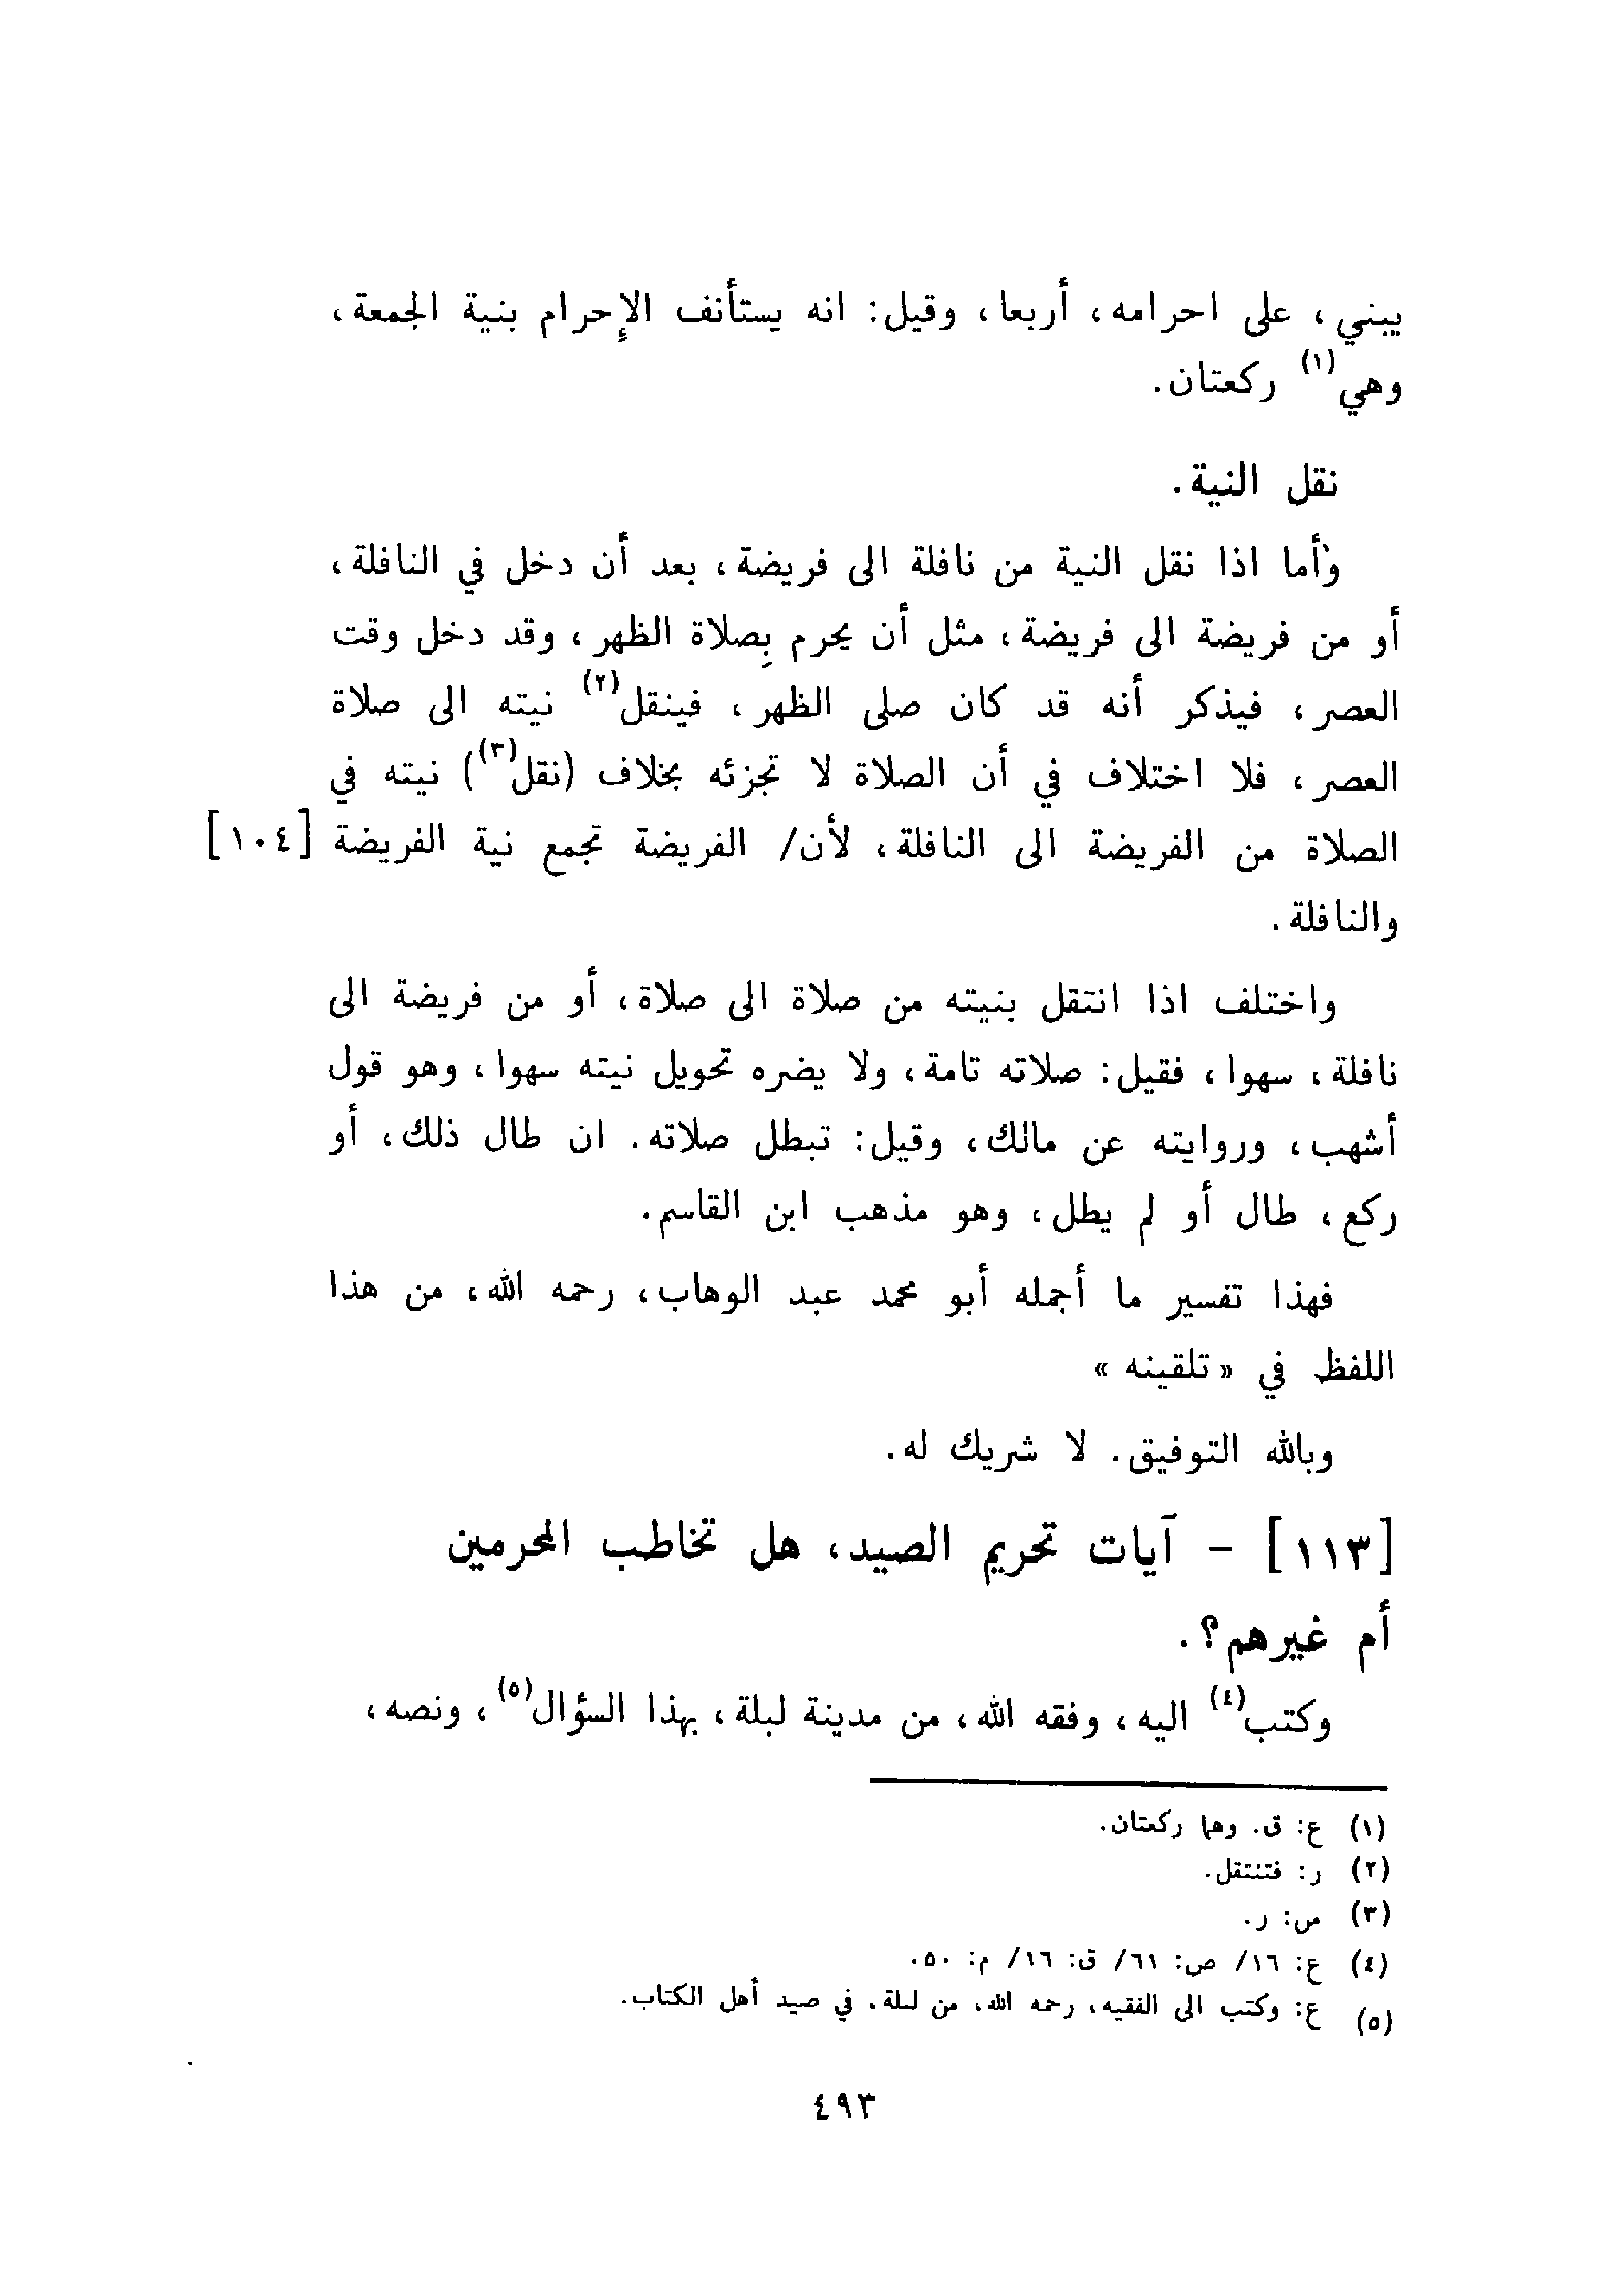 يبني، على احرامه، أربعا، وقيل: انه يستأنف الإحرام بنية الجمعة،
وهي(١) ركعتان.
نقل النية.
وأما اذا نقل النية من نافلة الى فريضة، بعد أن دخل في النافلة،
أو من فريضة الى فريضة، مثل أن يحرم بِصلاة الظهر، وقد دخل وقت
العصر، فيذكر أنه قد كان صلى الظهر، فينقل(٢) نيته الى صلاة
العصر، فلا اختلاف في أن الصلاة لا تجزئه بخلاف (نقل(٣)) نيته في
الصلاة من الفريضة الى النافلة، لأن/ الفريضة تجمع نية الفريضة [١٠٤]
والنافلة.
واختلف اذا انتقل بنيته من صلاة الى صلاة، أو من فريضة الى
نافلة، سهوا، فقيل: صلاته تامة، ولا يضره تحويل نيته سهوا، وهو قول
أشهب، وروايته عن مالك، وقيل: تبطل صلاته. ان طال ذلك، أو
ركع، طال أو لم يطل، وهو مذهب ابن القاسم.
فهذا تفسير ما أجمله أبو محمد عبد الوهاب، رحمه الله، من هذا
اللفظ في «تلقينه»
وبالله التوفيق. لا شريك له.
[١١٣] - آيات تحريم الصيد، هل تخاطب المحرمين
أم غيرهم؟.
وكتب(٤) اليه، وفقه الله، من مدينة لبلة، بهذا السؤال(٥)، ونصه،
(١) ع: ق. وهما ركعتان.
(٢) ر: فتنتقل.
(٣) ص: ر.
(٤) ع: ١٦/ ص: ٦١/ ق: ١٦/ م: ٥٠.
(٥) ع: وكتب الى الفقيه، رحمه الله، من لبلة. في صيد أهل الكتاب.
٤٩٣